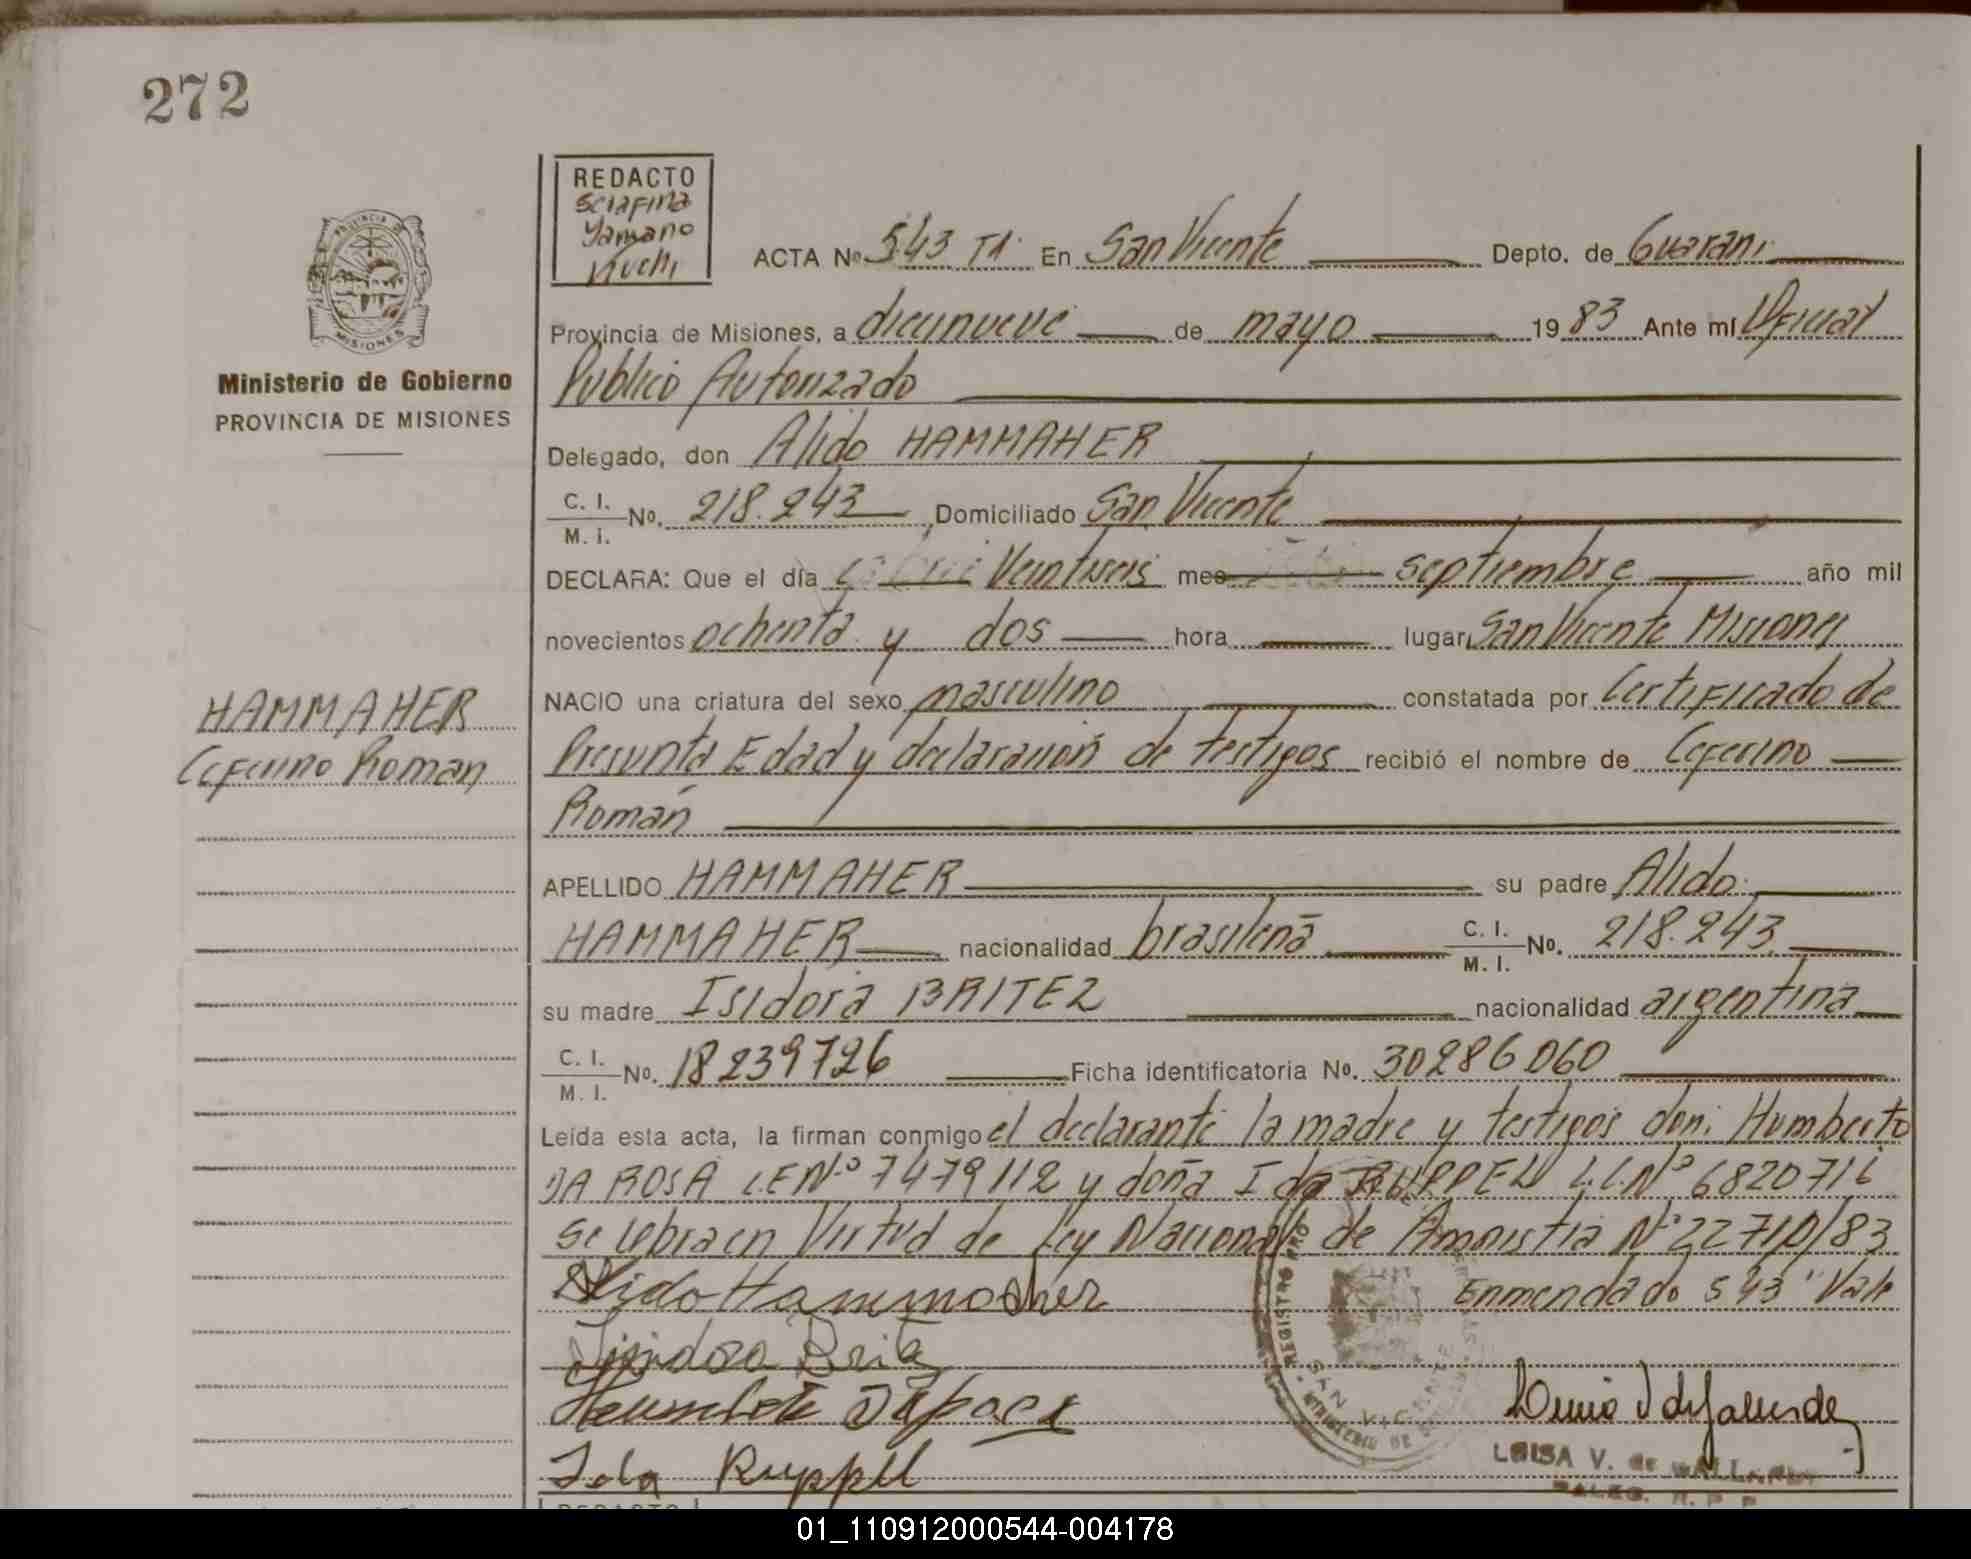 272
REDACTO
Serafina
Yamano
Kuchi
ACTA No. 543 TA. En San Vicente Depto. de Guarani
PROVINCIA DE
MISIONES
Provincia de Misiones, a diecinueve de mayo 19 83 Ante mí Oficial
Ministerio de Gobierno
PROVINCIA DE MISIONES
Publico Autorizado
Delegado, don Alido HAMMAHER
C. I.
M. I. No. 218.243 Domiciliado San Vicente
DECLARA: Que el día Veintiseis mes septiembre año mil
novecientos ochenta y dos hora lugar San Vicente Misiones
HAMMAHER
Ceferino Roman
NACIO una criatura del sexo masculino constatada por Certificado de
Presunta Edad y declaración de testigos recibió el nombre de Ceferino
Román
APELLIDO HAMMAHER su padre Alido
HAMMAHER nacionalidad brasileña C. I.
M. I. No. 218.243
su madre Isidora BRITEZ nacionalidad argentina
C. I.
M. I. No. 18239726 Ficha identificatoria No. 30286060
Leída esta acta, la firman conmigo el declarante la madre y testigos don: Humberto
DA ROSA L.E Nº 7479112 y doña Ida RUPPEL L.C. Nº 6820716
se labra en Virtud de Ley Nacional de Amnistia Nº 22710/83
Alido Hammaher Enmendado 543 "Vale
Isidora Brite
Ida Ruppel
SAN VICENTE
LUISA V. de GALLARDO
01_110912000544-004178